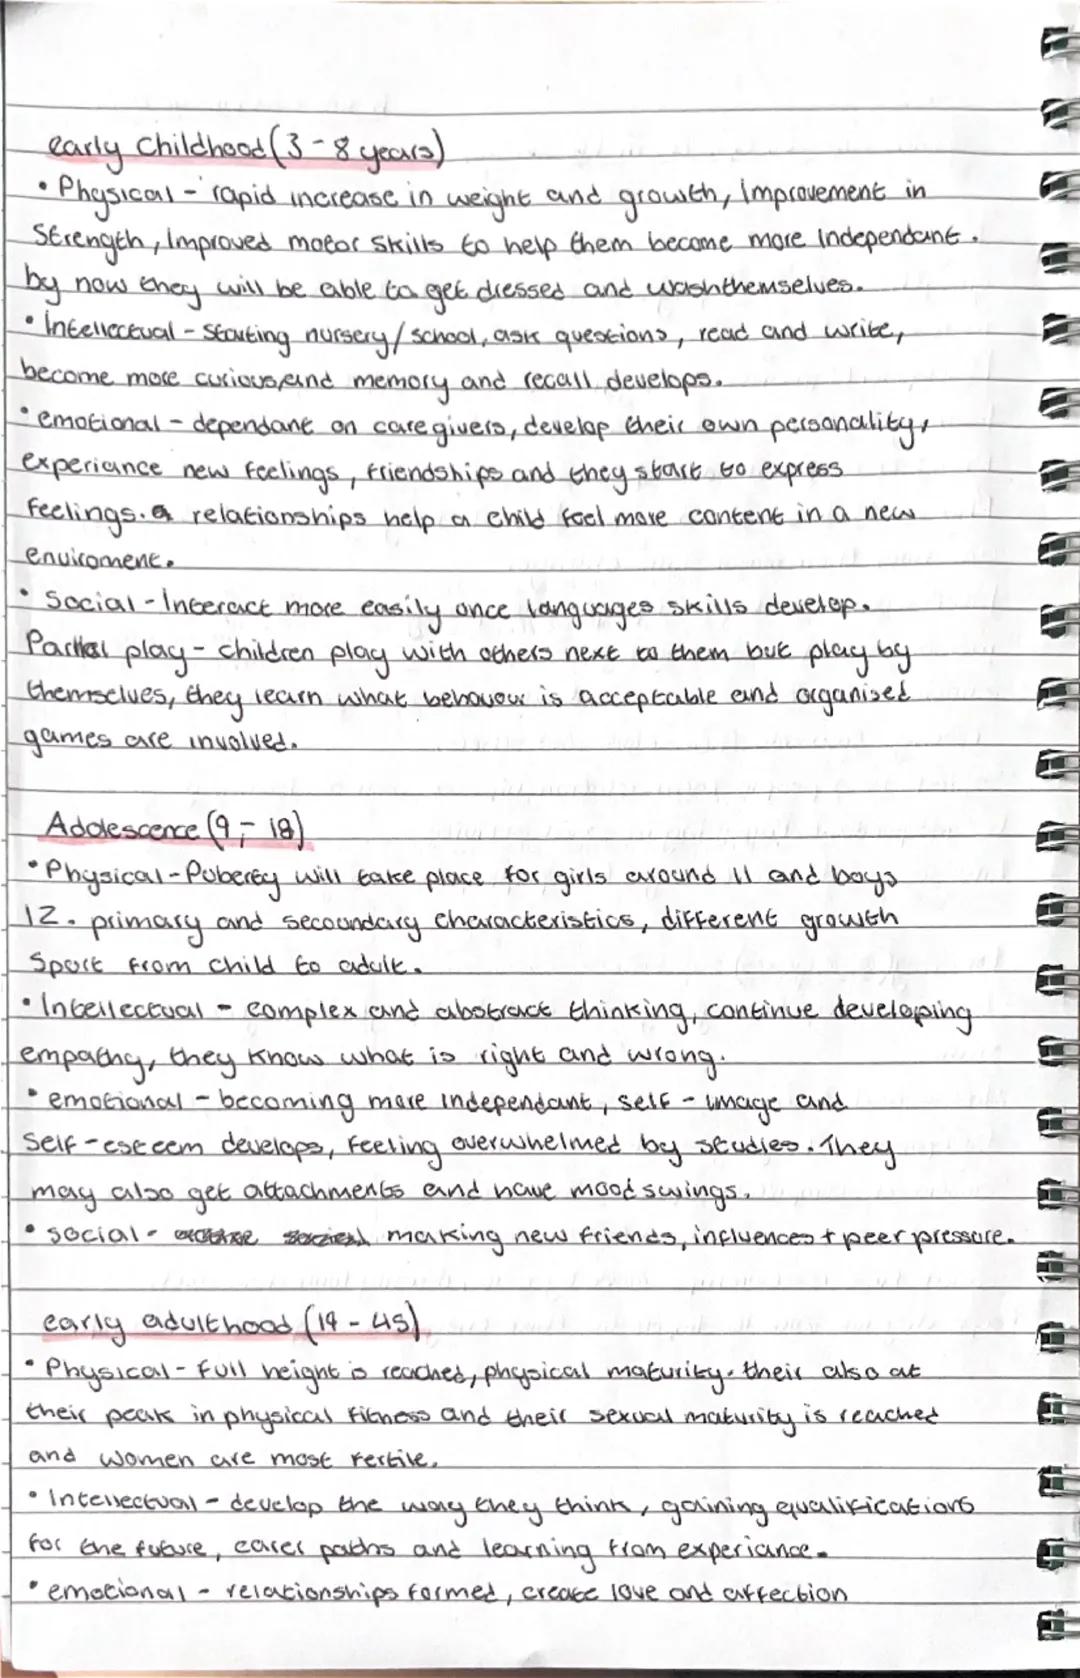 early childhood (3-8 years)
• Physical - rapid increase in weight and growth, improvement in
Strength, Improved motor skills to help them become more independant.
by now they will be able to get dressed and wash themselves.
• Intellectual - Starting nursery/school, ask questions, read and write,
become more curious, and memory and recall develops.
• emotional - dependant on caregivers, develop their own personality,
experiance new feelings, friendships and they start to express
feelings. relationships help a child feel more content in a new
enviroment.
• Social - Interact more easily once languages skills develop.
play - children play with others next to them but play by
themselves, they learn what behavour is acceptable and organised
games are involved.
Adolescence (9 - 18)
• Physical - Puberty will take place for girls around 11 and boys
12. primary and secoundary characteristics, different growth
Spurt from child to adult.
• Intellectual - complex and abstract thinking, continue developing
empathy, they know what is right and wrong.
• emotional - becoming more independant, self-image and
Self-esteem develops, feeling overwhelmed by studies. They
may also get attachments and have mood swings.
• social - making new friends, influences + peer pressure.
early adulthood (19 - 45)
• Physical - full height is reached, physical maturity. their also at
their peak in physical fitness and their sexual maturity is reached
and women are most fertile.
• Intellectual - develop the way they think, gaining qualifications
for the future, carer paths and learning from experiance.
• emotional - relationships formed, create love and affection